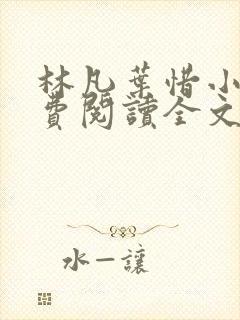 林凡葉惜小
費閱讀全文
水一讓